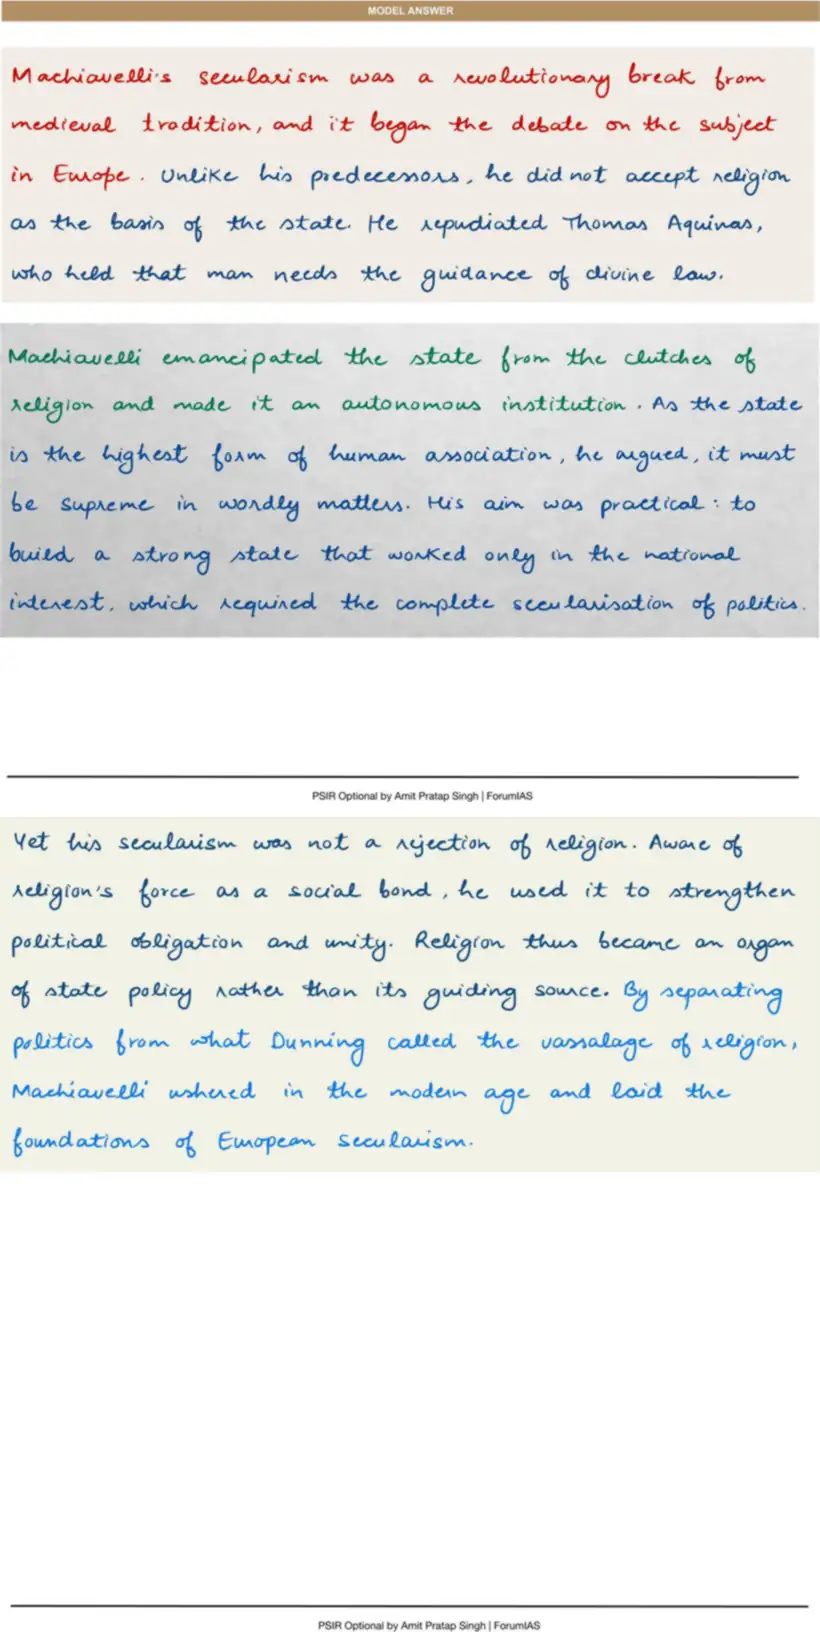 MODEL ANSWER
Machiavelli's secularism was a revolutionary break from
medieval tradition, and it began the debate on the subject
in Europe. Unlike his predecessors, he did not accept religion
as the basis of the state. He repudiated Thomas Aquinas,
who held that man needs the guidance of divine law.
Machiavelli emancipated the state from the clutches of
religion and made it an autonomous institution. As the state
is the highest form of human association, he argued, it must
be supreme in wordly matters. His aim was practical: to
build a strong state that worked only in the national
interest, which required the complete secularisation of politics.
PSIR Optional by Amit Pratap Singh | ForumIAS
Yet his secularism was not a rejection of religion. Aware of
religion's force as a social bond, he used it to strengthen
political obligation and unity. Religion thus became an organ
of state policy rather than its guiding source. By separating
politics from what Dunning called the vassalage of religion,
Machiavelli ushered in the modern age and laid the
foundations of European secularism.
PSIR Optional by Amit Pratap Singh | ForumIAS